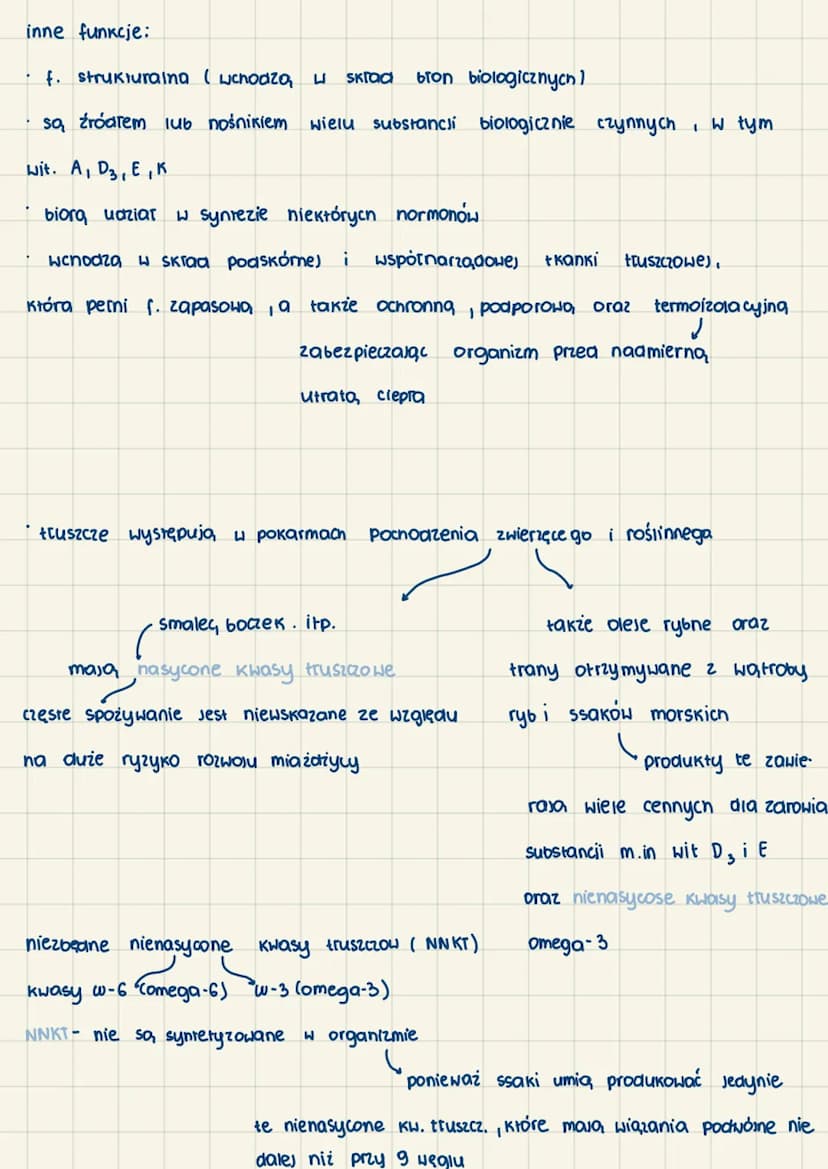 inne funkcje:
· f. strukturalna ( wchodzą w skład błon biologicznych)
· są źródłem lub nośnikiem wielu substancji biologicznie czynnych, w tym
wit. A, D3, E, K
· biorą udział w syntezie niektórych hormonów
· wchodzą w skład podskórnej i współnarządowej tkanki tłuszczowej,
która pełni f. zapasową, a także ochronną, podporową oraz termoizolacyjną
zabezpieczając organizm przed nadmierną
utratą ciepła
· tłuszcze występują w pokarmach pochodzenia zwierzęcego i roślinnega
smalec, boczek. itp.
mają nasycone kwasy tłuszczowe
częste spożywanie jest niewskazane ze względu
na duże ryzyko rozwoju miażdżycy
także oleje rybne oraz
trany otrzymywane z wątroby
ryb i ssaków morskich
produkty te zawie-
rają wiele cennych dla zdrowia
substancji m.in wit D3 i E
oraz nienasycose kwasy tłuszczowe
omega-3
niezbędne nienasycone kwasy tłuszczow (NNKT)
kwasy w-6 (omega-6) w-3 (omega-3)
NNKT- nie są syntetyzowane w organizmie
ponieważ ssaki umią produkować jedynie
te nienasycone kw. tłuszcz., które mają wiązania podwójne nie
dalej niż przy 9 węglu